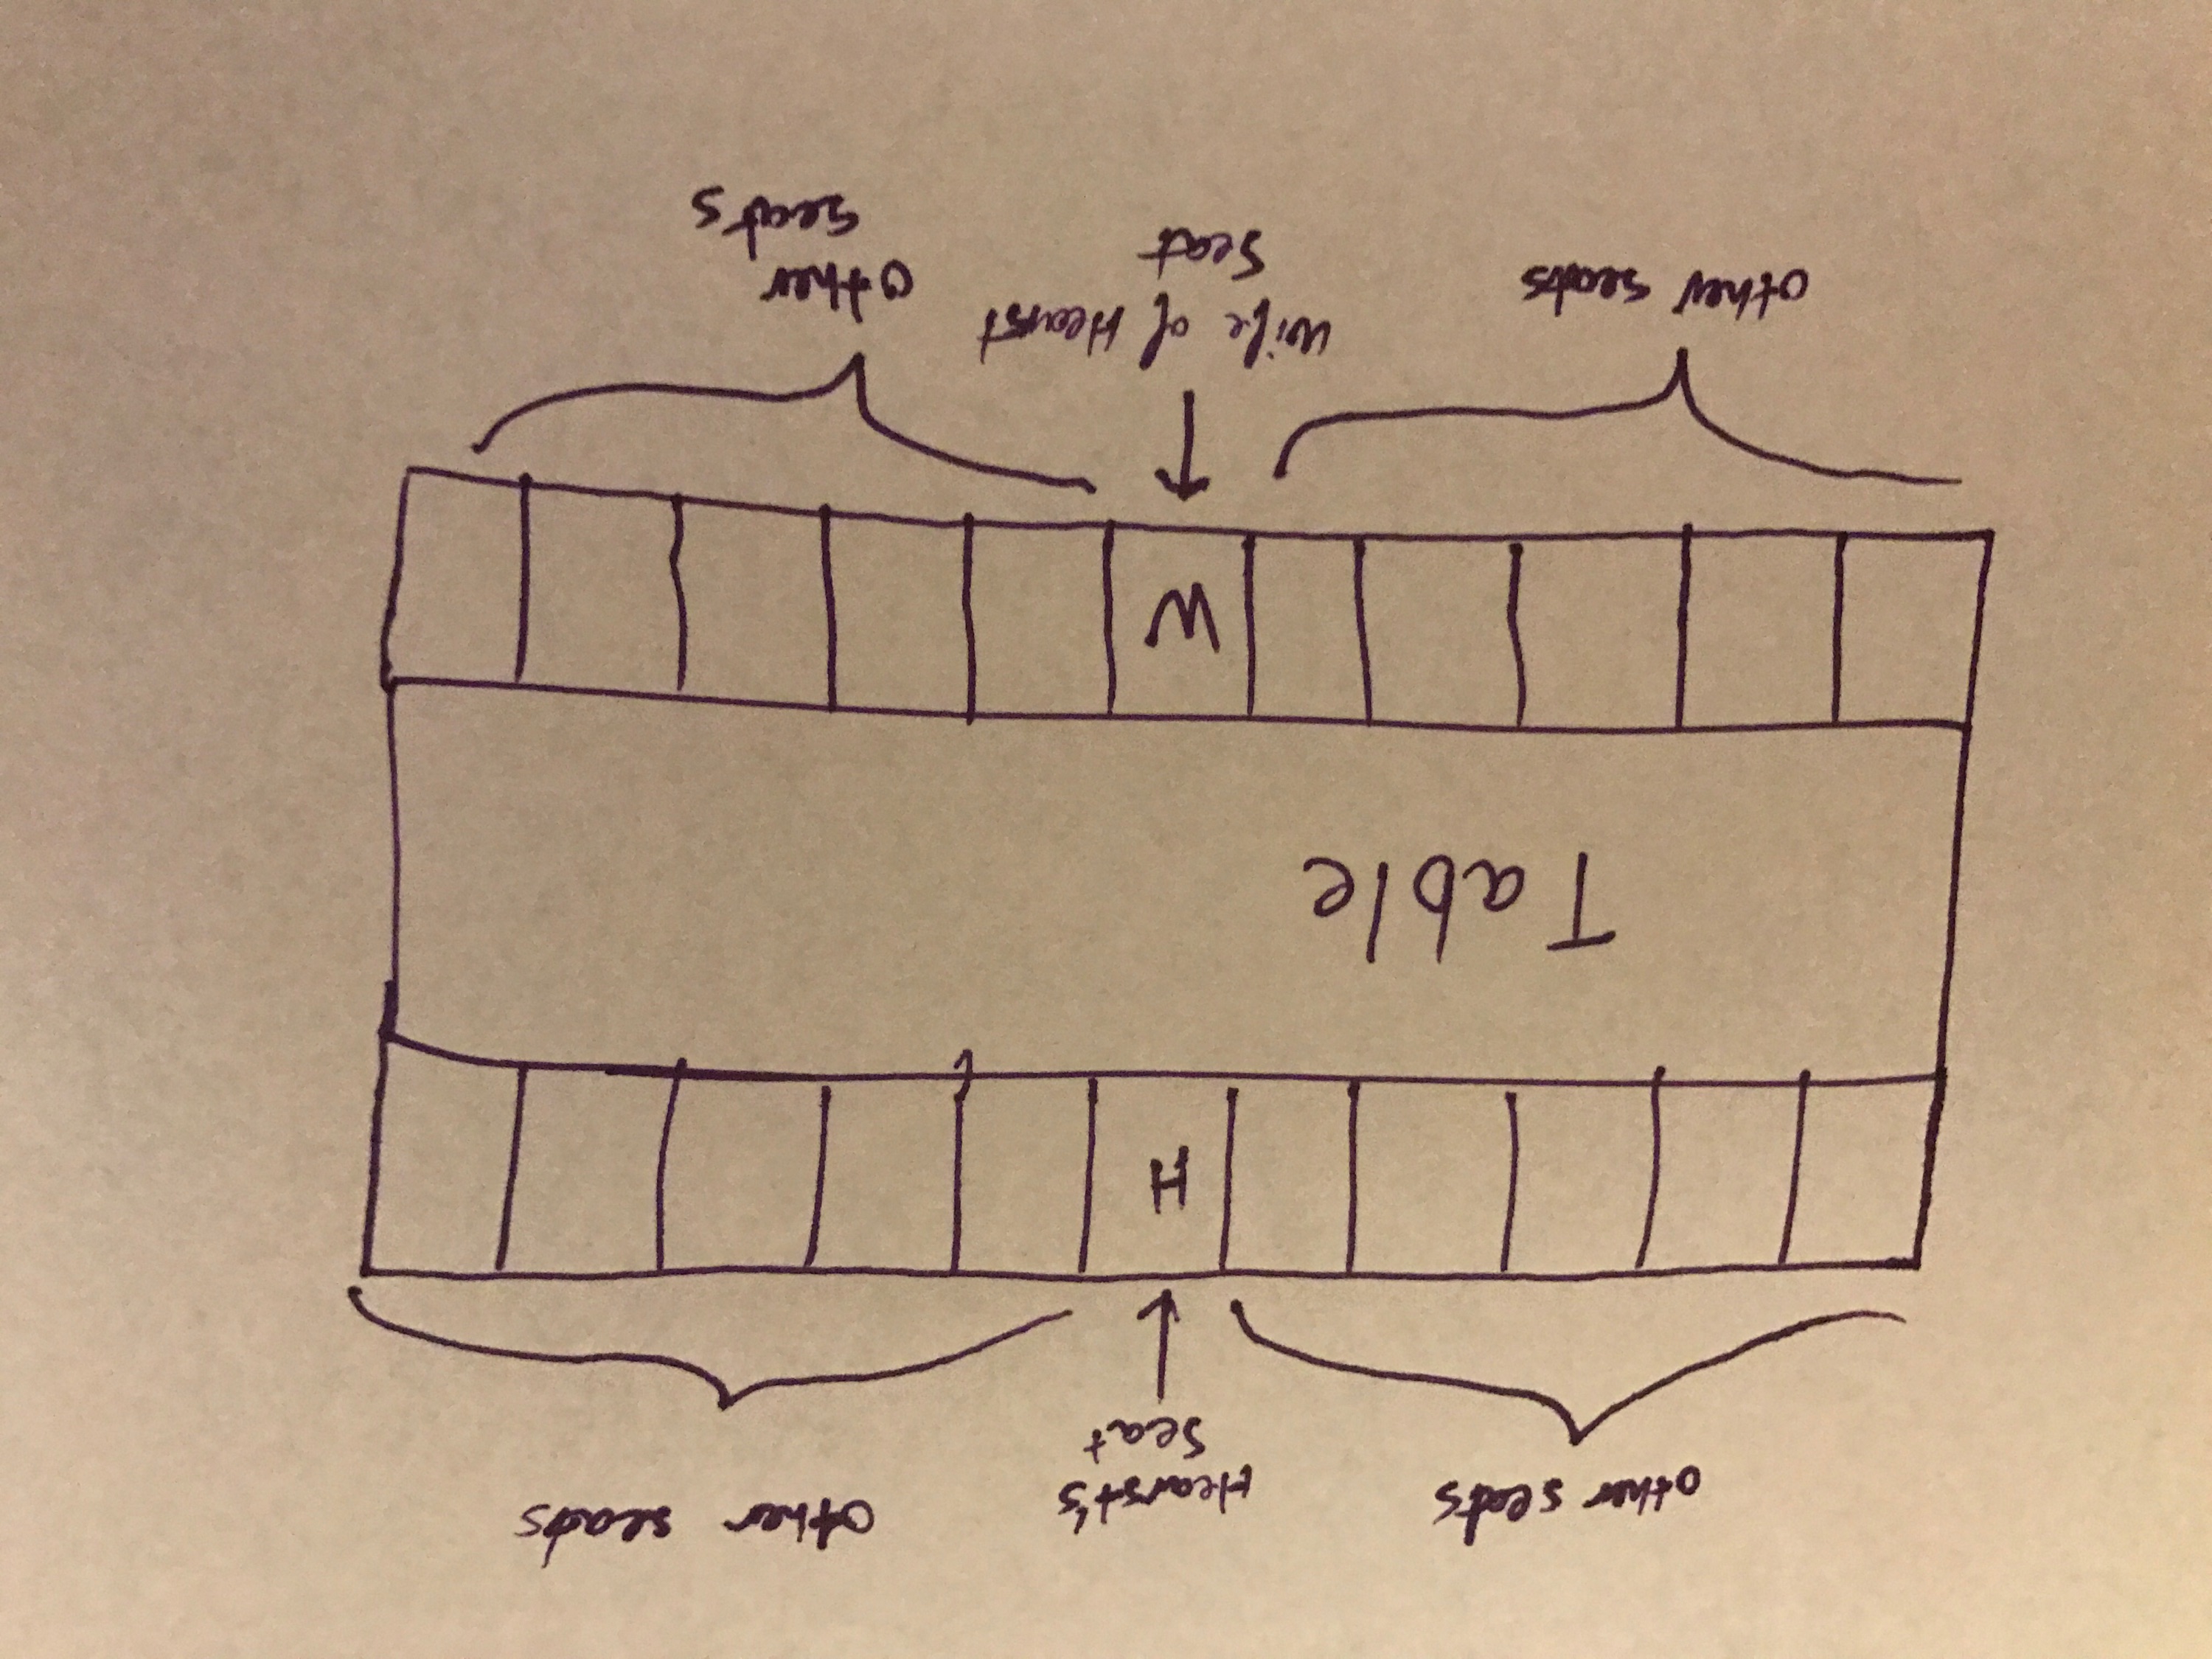 other seats
Hearst's
Seat
other seats
H
Table
W
other seats
Wife of Hearst
Seat
other
seats